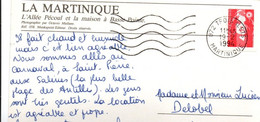 LA MARTINIQUE
L'Allée Pécoul et la maison à Basse-Pointe.
Il fait chaud et humide
mais c'est bien agréable.
Nous sommes allés au
Carnaval, à Saint-Pierre,
aux Salines (la plus belle
plage des Antilles). Les gens
sont très gentils. La location
est agréable et propre.
MARTINIQUE
Madame et Monsieur Lucien
Delobel